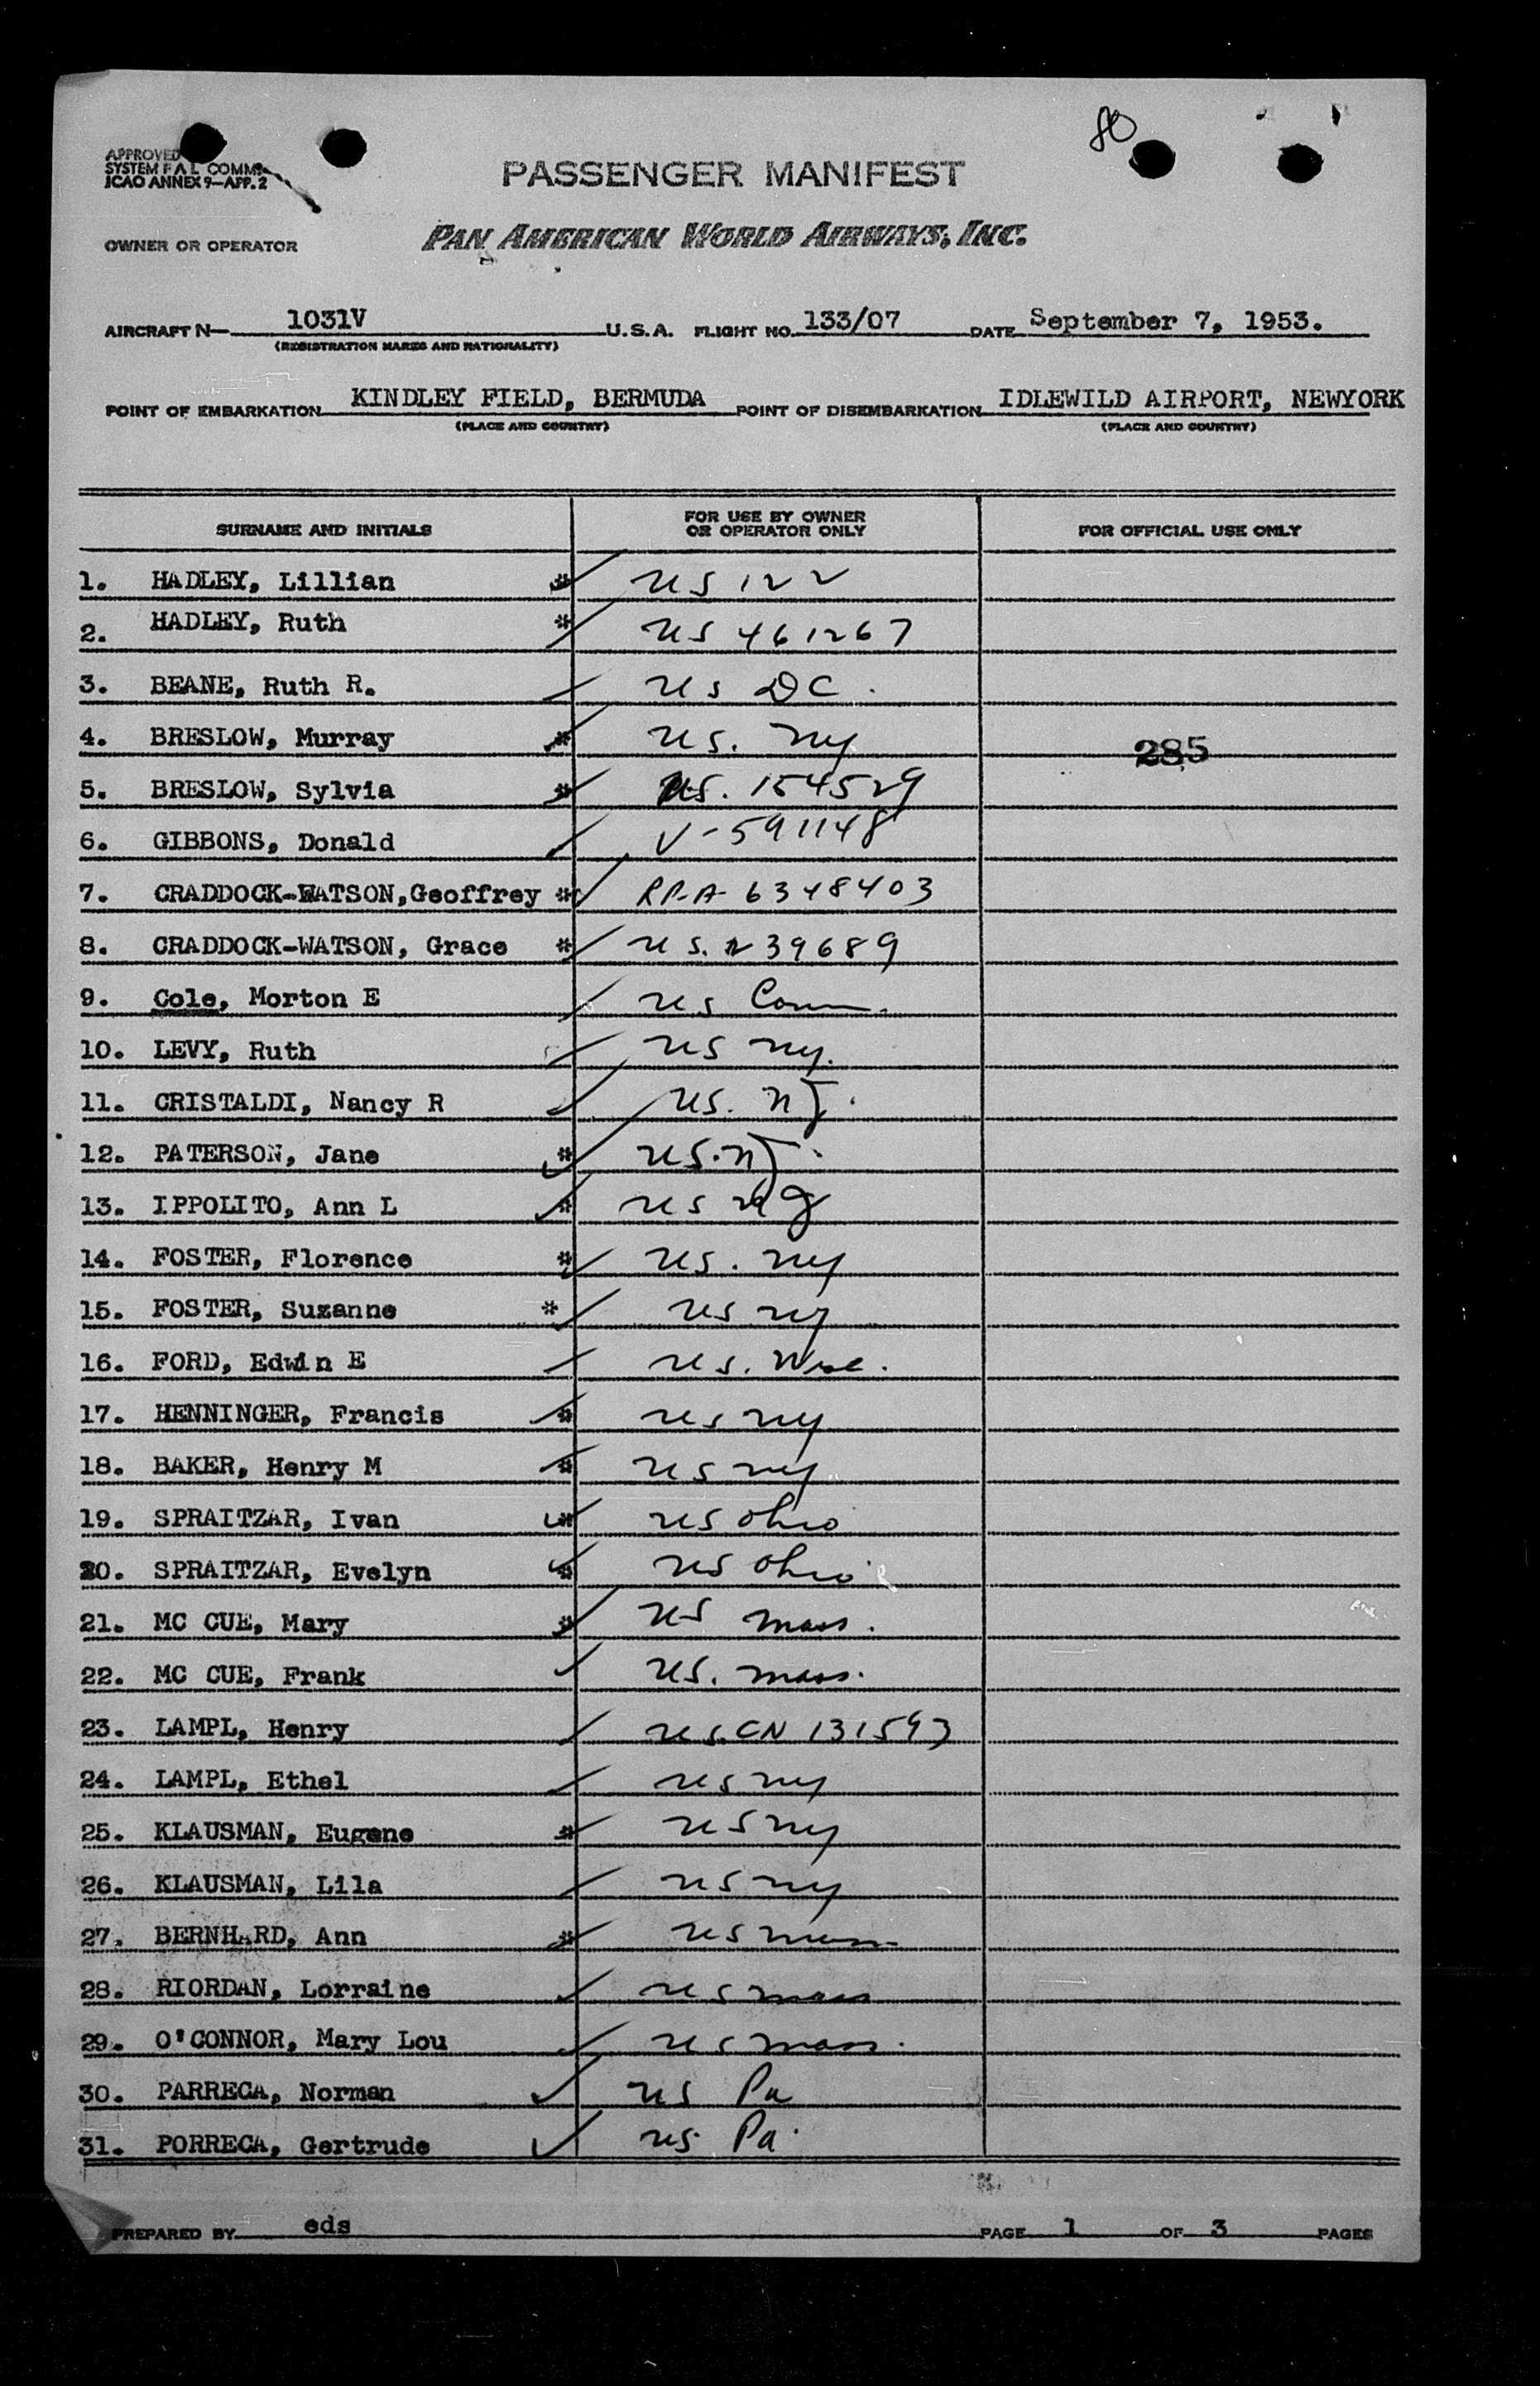 80
APPROVED
SYSTEM F A L COMM.
ICAO ANNEX 9—APP. 2
PASSENGER MANIFEST
OWNER OR OPERATOR
PAN AMERICAN WORLD AIRWAYS, INC.
AIRCRAFT N— 1031V U.S.A. FLIGHT NO. 133/07 DATE September 7, 1953.
(REGISTRATION MARKS AND NATIONALITY)
POINT OF EMBARKATION KINDLEY FIELD, BERMUDA POINT OF DISEMBARKATION IDLEWILD AIRPORT, NEWYORK
(PLACE AND COUNTRY) (PLACE AND COUNTRY)
SURNAME AND INITIALS FOR USE BY OWNER OR OPERATOR ONLY FOR OFFICIAL USE ONLY
1. HADLEY, Lillian * US 122
2. HADLEY, Ruth * US 461267
3. BEANE, Ruth R. US DC.
4. BRESLOW, Murray * US. NY 285
5. BRESLOW, Sylvia * US. 154529
6. GIBBONS, Donald V-591148
7. CRADDOCK-WATSON,Geoffrey * RP-A- 6348403
8. CRADDOCK-WATSON, Grace * US. N 39689
9. Cole, Morton E US Conn.
10. LEVY, Ruth US NY.
11. CRISTALDI, Nancy R US. NJ.
12. PATERSON, Jane * US. NJ.
13. IPPOLITO, Ann L * US
14. FOSTER, Florence * US. NY
15. FOSTER, Suzanne * US NY
16. FORD, Edwin E US. Wisc.
17. HENNINGER, Francis * US NY
18. BAKER, Henry M * US NY
19. SPRAITZAR, Ivan * US Ohio
20. SPRAITZAR, Evelyn * US Ohio
21. MC CUE, Mary * US Mass.
22. MC CUE, Frank US. Mass.
23. LAMPL, Henry US. CN 131593
24. LAMPL, Ethel US NY
25. KLAUSMAN, Eugene * US NY
26. KLAUSMAN, Lila US NY
27. BERNHARD, Ann * US Mass
28. RIORDAN, Lorraine US Mass
29. O'CONNOR, Mary Lou US Mass.
30. PARRECA, Norman US Pa
31. PORRECA, Gertrude US Pa.
PREPARED BY eds PAGE 1 OF 3 PAGES